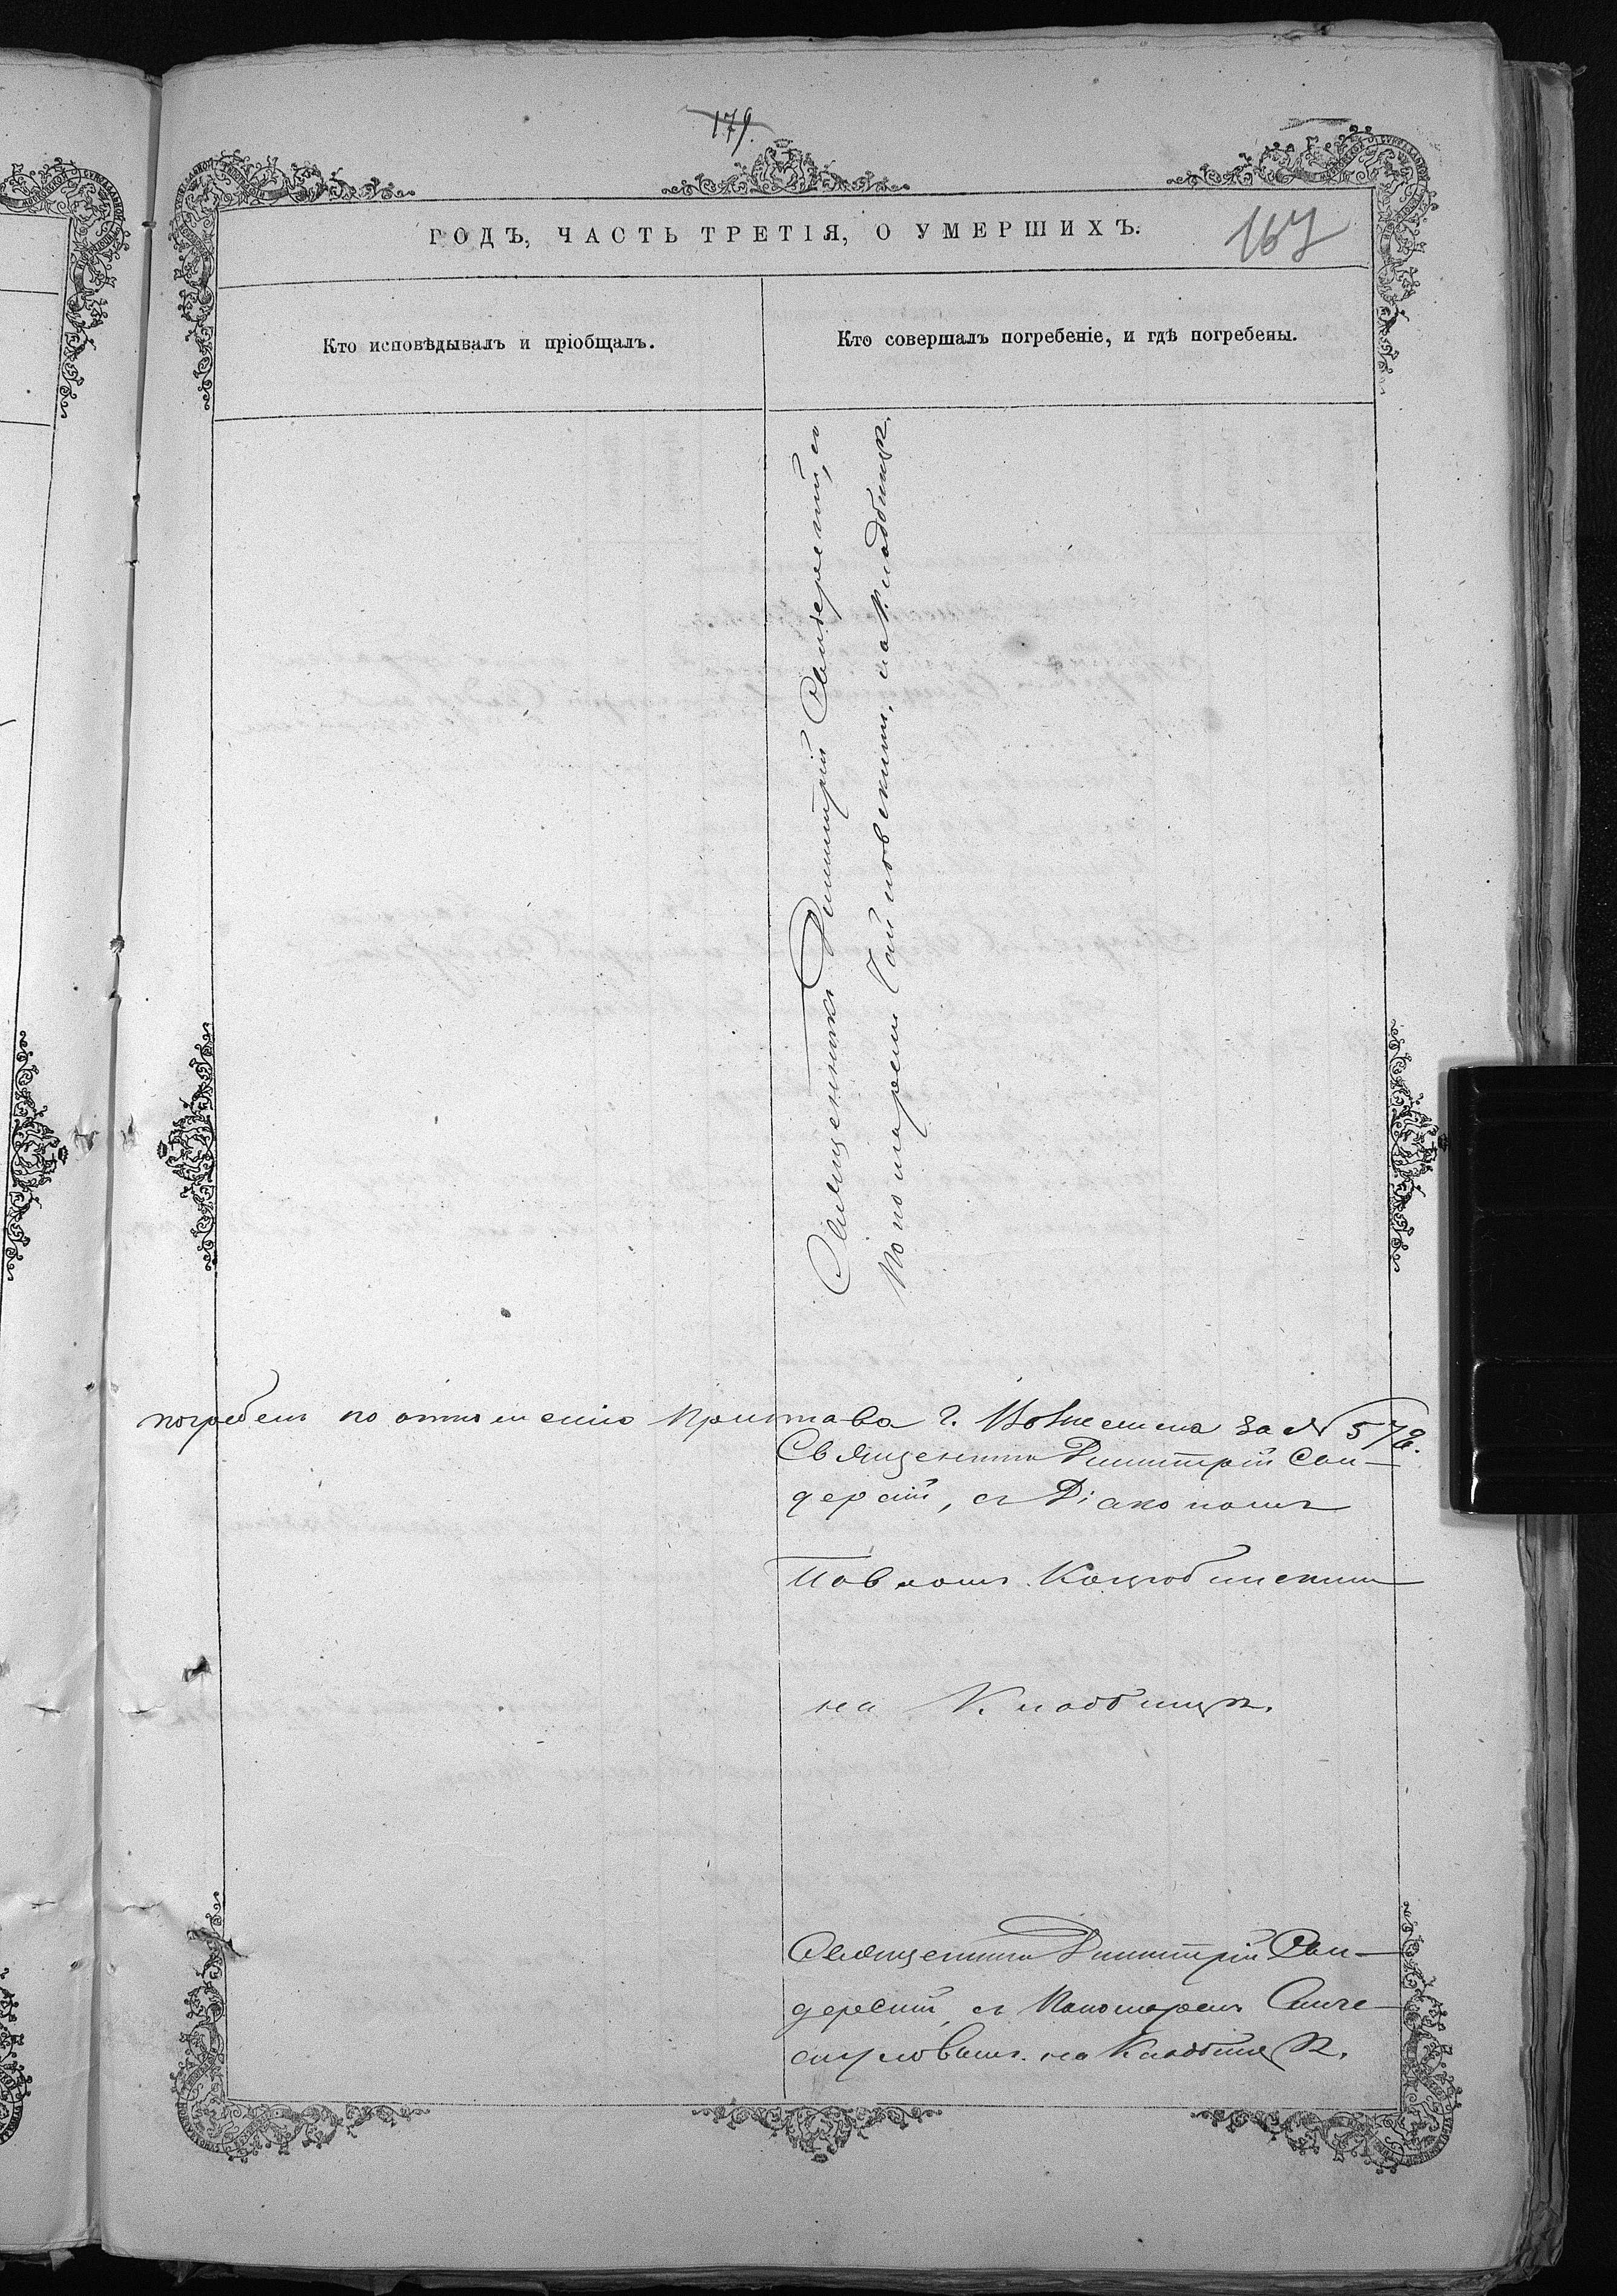 179.
ГОДЪ, ЧАСТЬ ТРЕТІЯ, О УМЕРШИХЪ.
167
Кто исповѣдывалъ и пріобщалъ.
Кто совершалъ погребеніе, и гдѣ погребены.
Священникъ Димитрій съ
Пономаремъ на Кладбищѣ.
погребенъ по отношенію Пристава г. Вознесенска за № 572.
Священникъ Димитрій Сан-
дерскій, съ Діакономъ
Павломъ Коцюбинскимъ
на Кладбищѣ.
Священникъ Димитрій Сан-
дерскій, съ Пономаремъ
на Кладбищѣ.